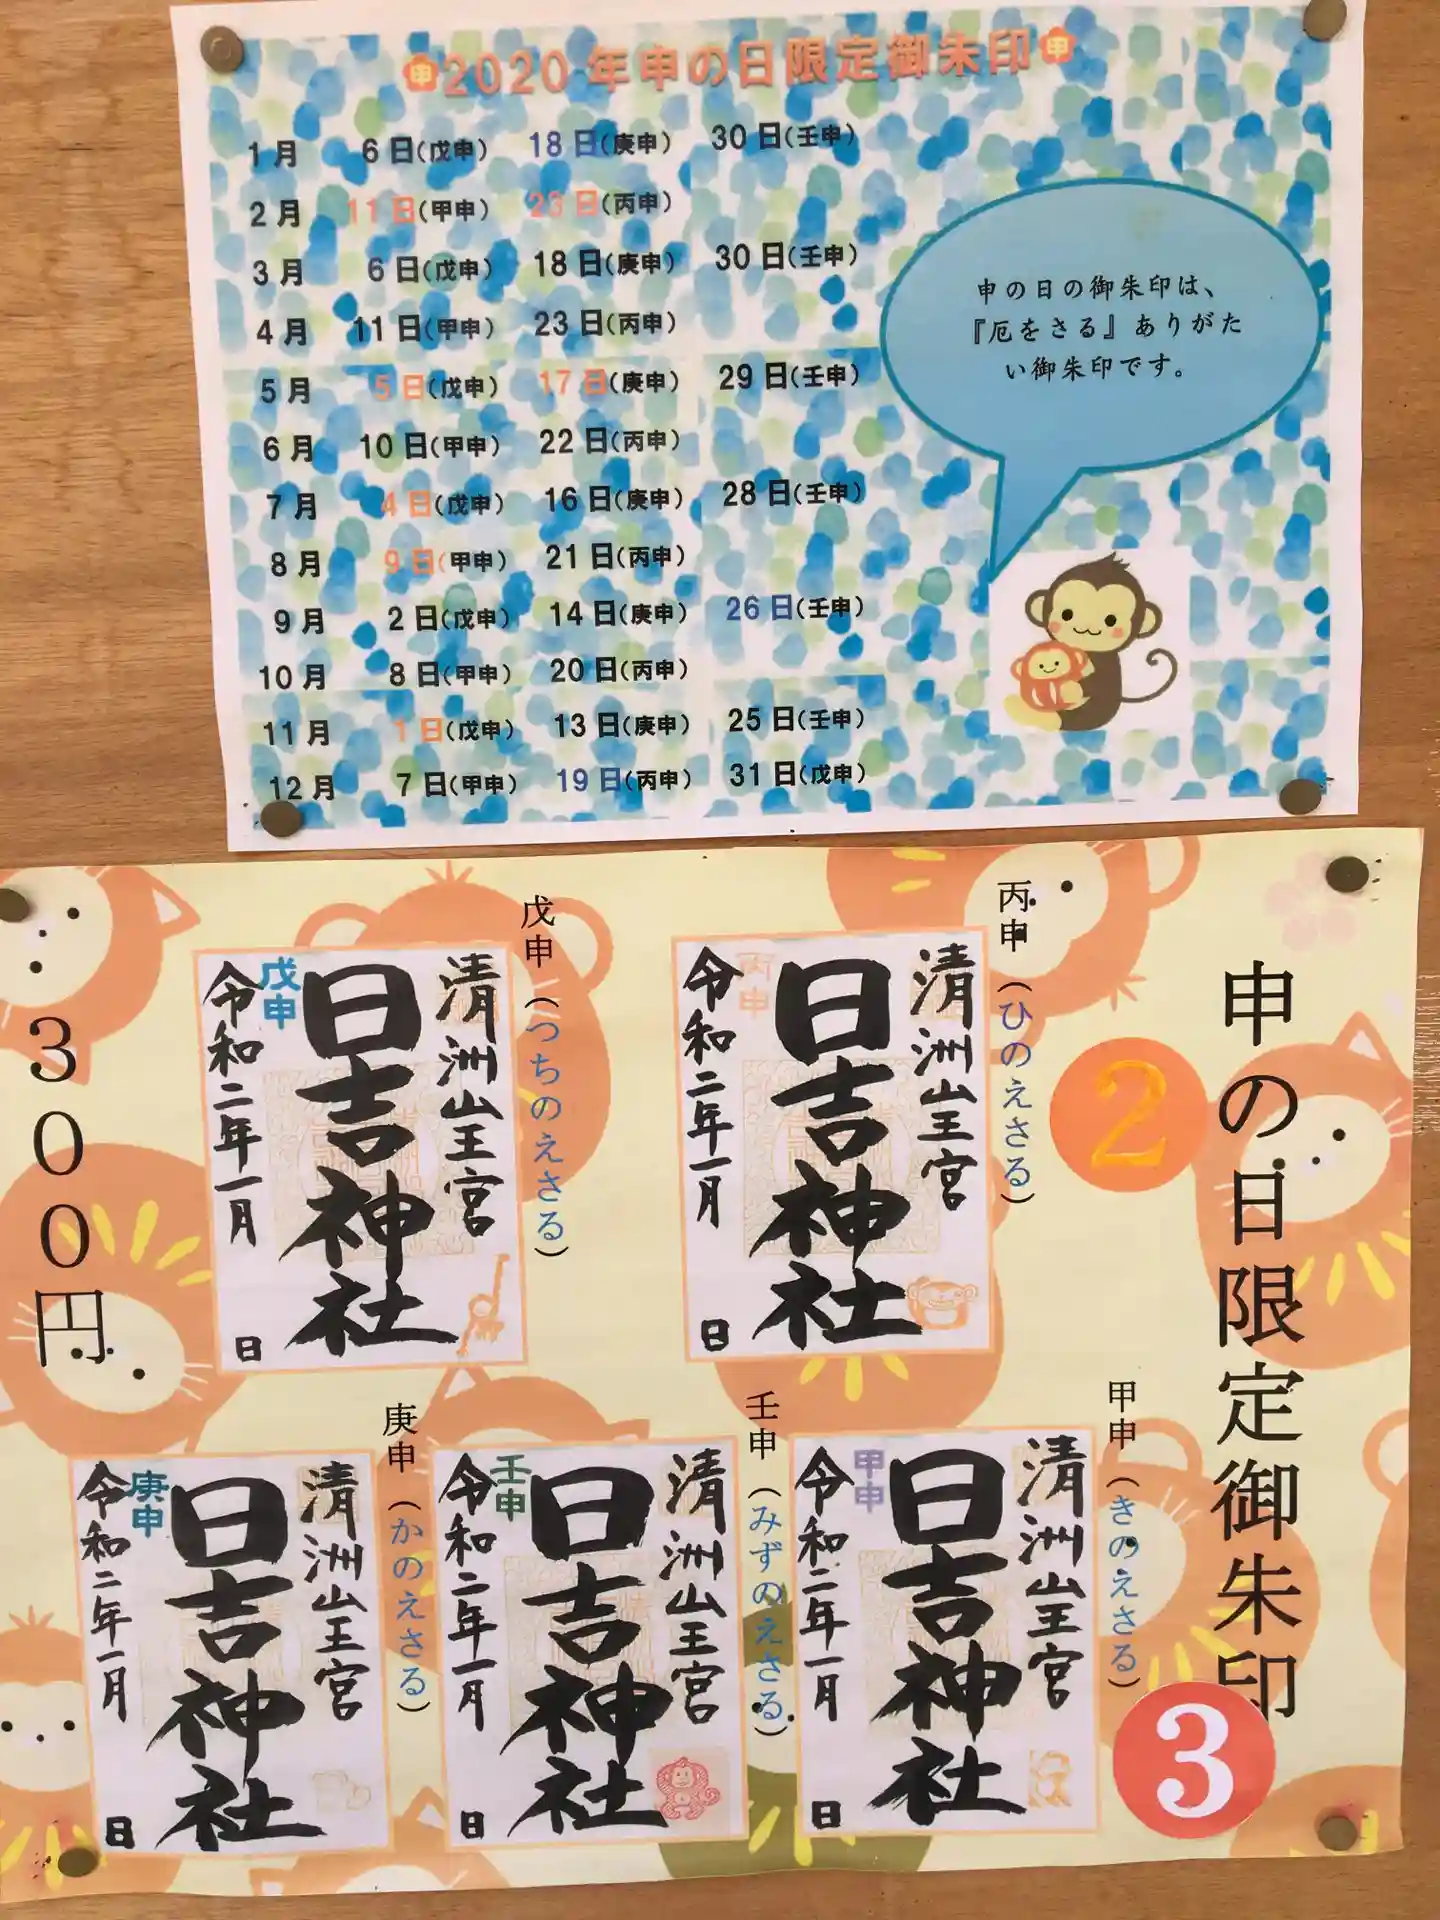 申 2020年申の日限定御朱印 申
1月 6日(戊申) 18日(庚申) 30日(壬申)
2月 11日(甲申) 23日(丙申)
3月 6日(戊申) 18日(庚申) 30日(壬申)
4月 11日(甲申) 23日(丙申)
5月 5日(戊申) 17日(庚申) 29日(壬申)
6月 10日(甲申) 22日(丙申)
7月 4日(戊申) 16日(庚申) 28日(壬申)
8月 9日(甲申) 21日(丙申)
9月 2日(戊申) 14日(庚申) 26日(壬申)
10月 8日(甲申) 20日(丙申)
11月 1日(戊申) 13日(庚申) 25日(壬申)
12月 7日(甲申) 19日(丙申) 31日(戊申)
申の日の御朱印は、
『厄をさる』ありがた
い御朱印です。
申の日限定御朱印
2
3
丙申(ひのえさる)
清洲山王宮
日吉神社
丙申
令和二年一月 日
戊申(つちのえさる)
清洲山王宮
日吉神社
戊申
令和二年一月 日
甲申(きのえさる)
清洲山王宮
日吉神社
甲申
令和二年一月 日
壬申(みずのえさる)
清洲山王宮
日吉神社
壬申
令和二年一月 日
庚申(かのえさる)
清洲山王宮
日吉神社
庚申
令和二年一月 日
300円